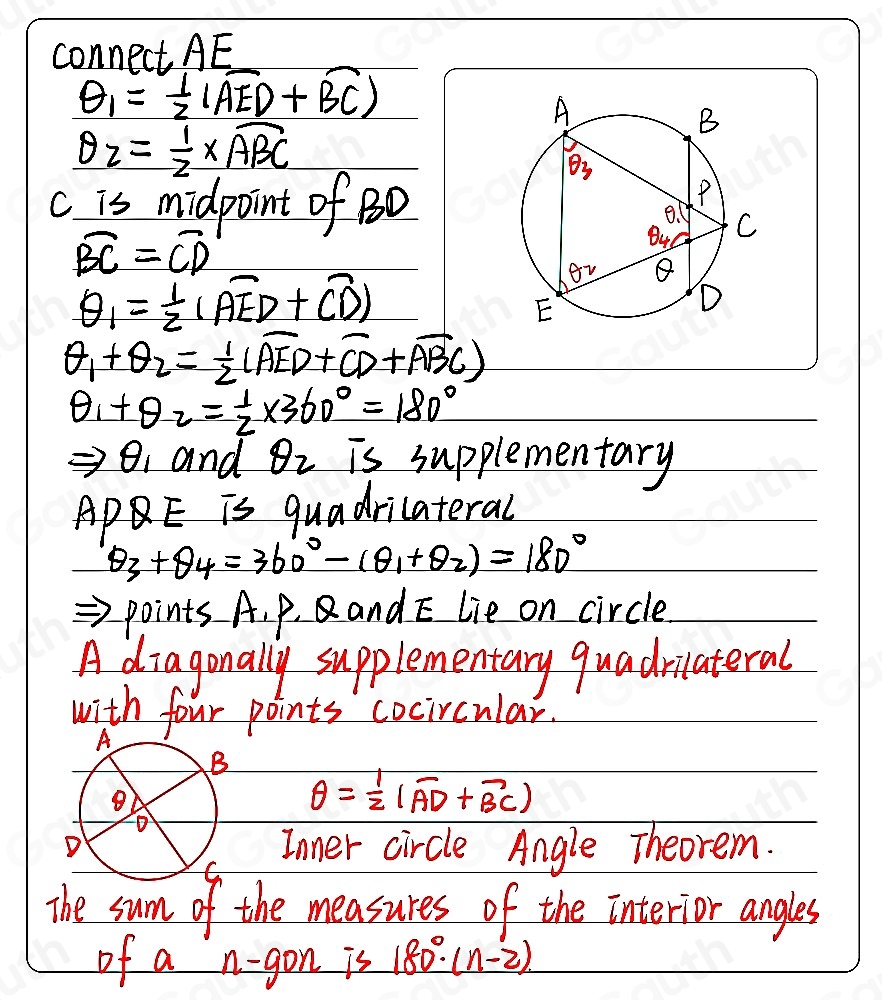 connect AE
θ₁ = ½(AED + BC)
θ₂ = ½ × ABC
C is midpoint of BD
BC = CD
θ₁ = ½(AED + CD)
θ₁ + θ₂ = ½(AED + CD + ABC)
θ₁ + θ₂ = ½ × 360° = 180°
⇒ θ₁ and θ₂ is supplementary
APQE is quadrilateral
θ₃ + θ₄ = 360° − (θ₁ + θ₂) = 180°
⇒ points A, P, Q and E lie on circle.
A
B
θ₃
P
θ₁
C
θ₄
θ₂
Q
D
E
A diagonally supplementary quadrilateral
with four points cocircular.
A
B
θ
O
D
C
θ = ½(AD + BC)
Inner circle Angle Theorem.
The sum of the measures of the interior angles
of a n-gon is 180°·(n-2)
Gauth